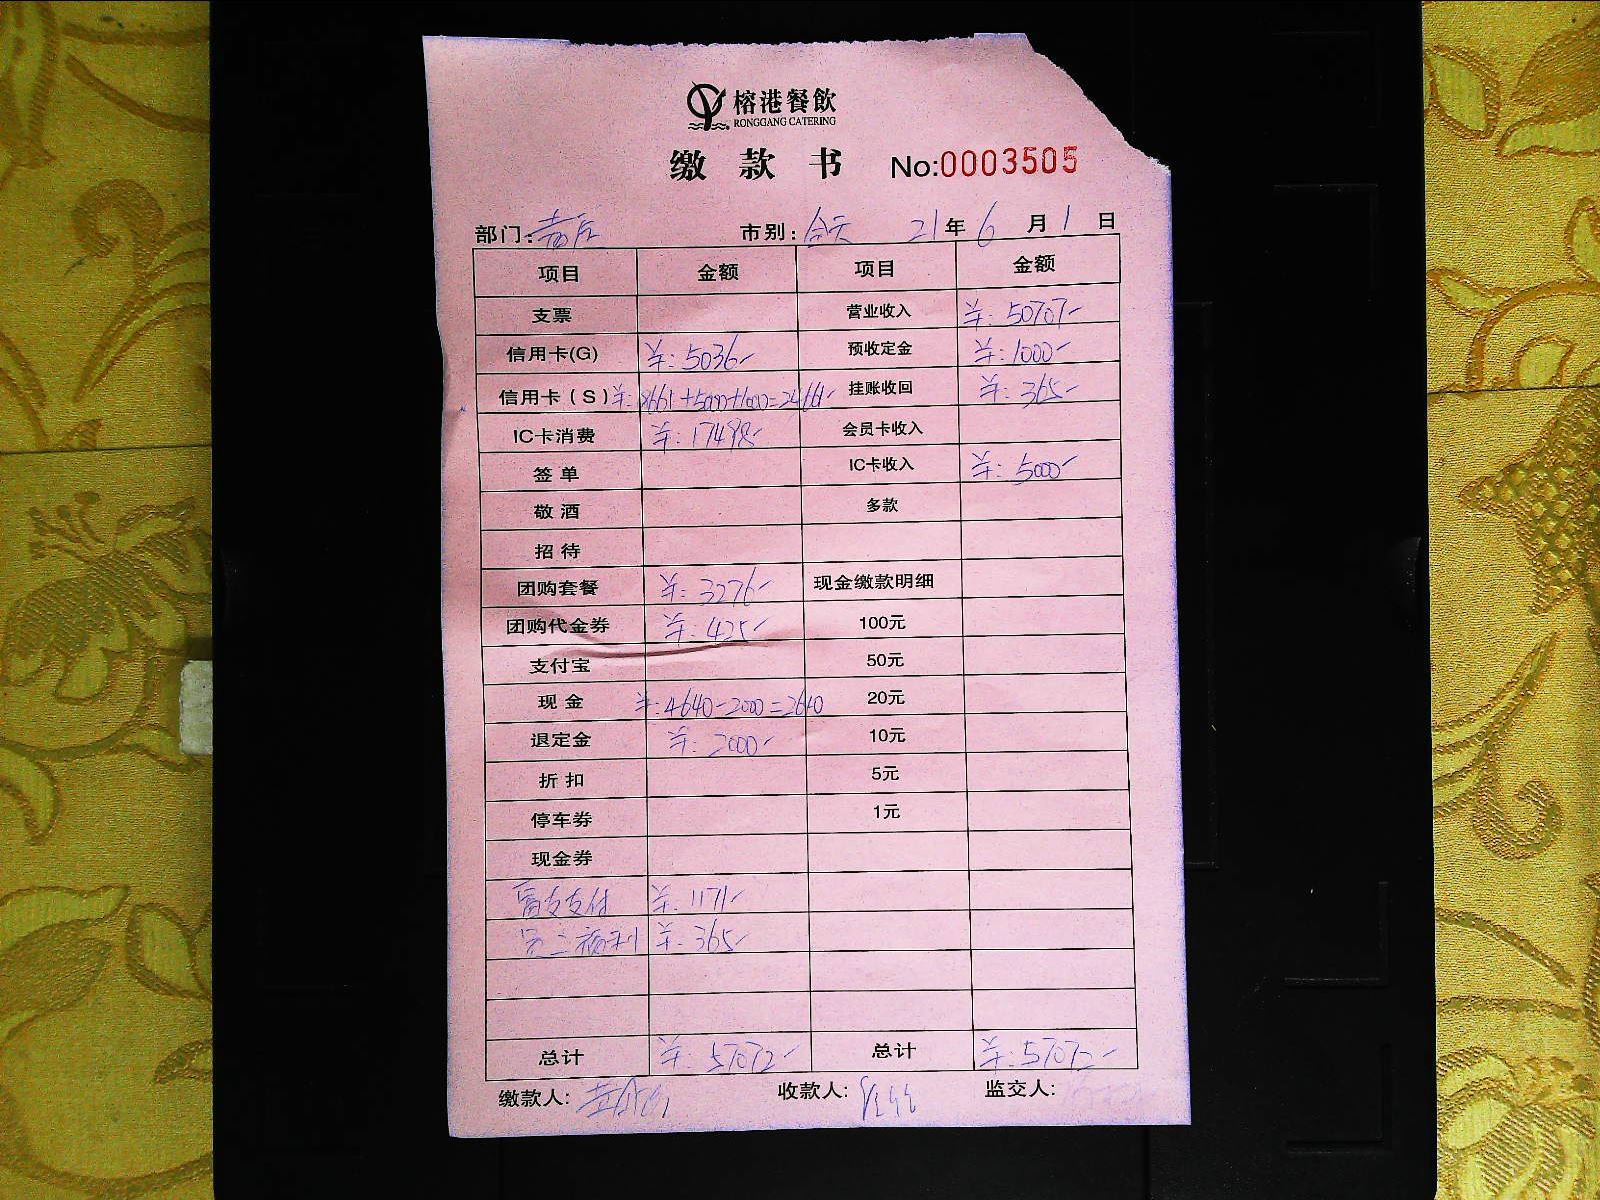 榕港餐飲
RONGGANG CATERING
缴款书 No:0003505
部门: 市别:全天 21年6月1日
项目 金额 项目 金额
支票 营业收入 羊:50707-
信用卡(G) 羊:5036- 预收定金 羊:1000-
信用卡(S) 羊:18661+5000+1000=24661- 挂账收回 羊:365-
IC卡消费 羊:17498- 会员卡收入
签单 IC卡收入 羊:5000-
敬酒 多款
招待
团购套餐 羊:3276- 现金缴款明细
团购代金券 羊:425- 100元
支付宝 50元
现金 羊:4640-2000=2640 20元
退定金 羊:2000- 10元
折扣 5元
停车券 1元
现金券
富友支付 羊:1171-
员工福利 羊:365-
总计 羊:57072- 总计 羊:57072-
缴款人: 收款人: 监交人: